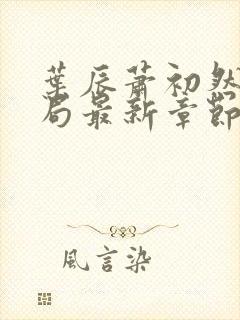 葉辰蕭初然
局最新章節
風言染